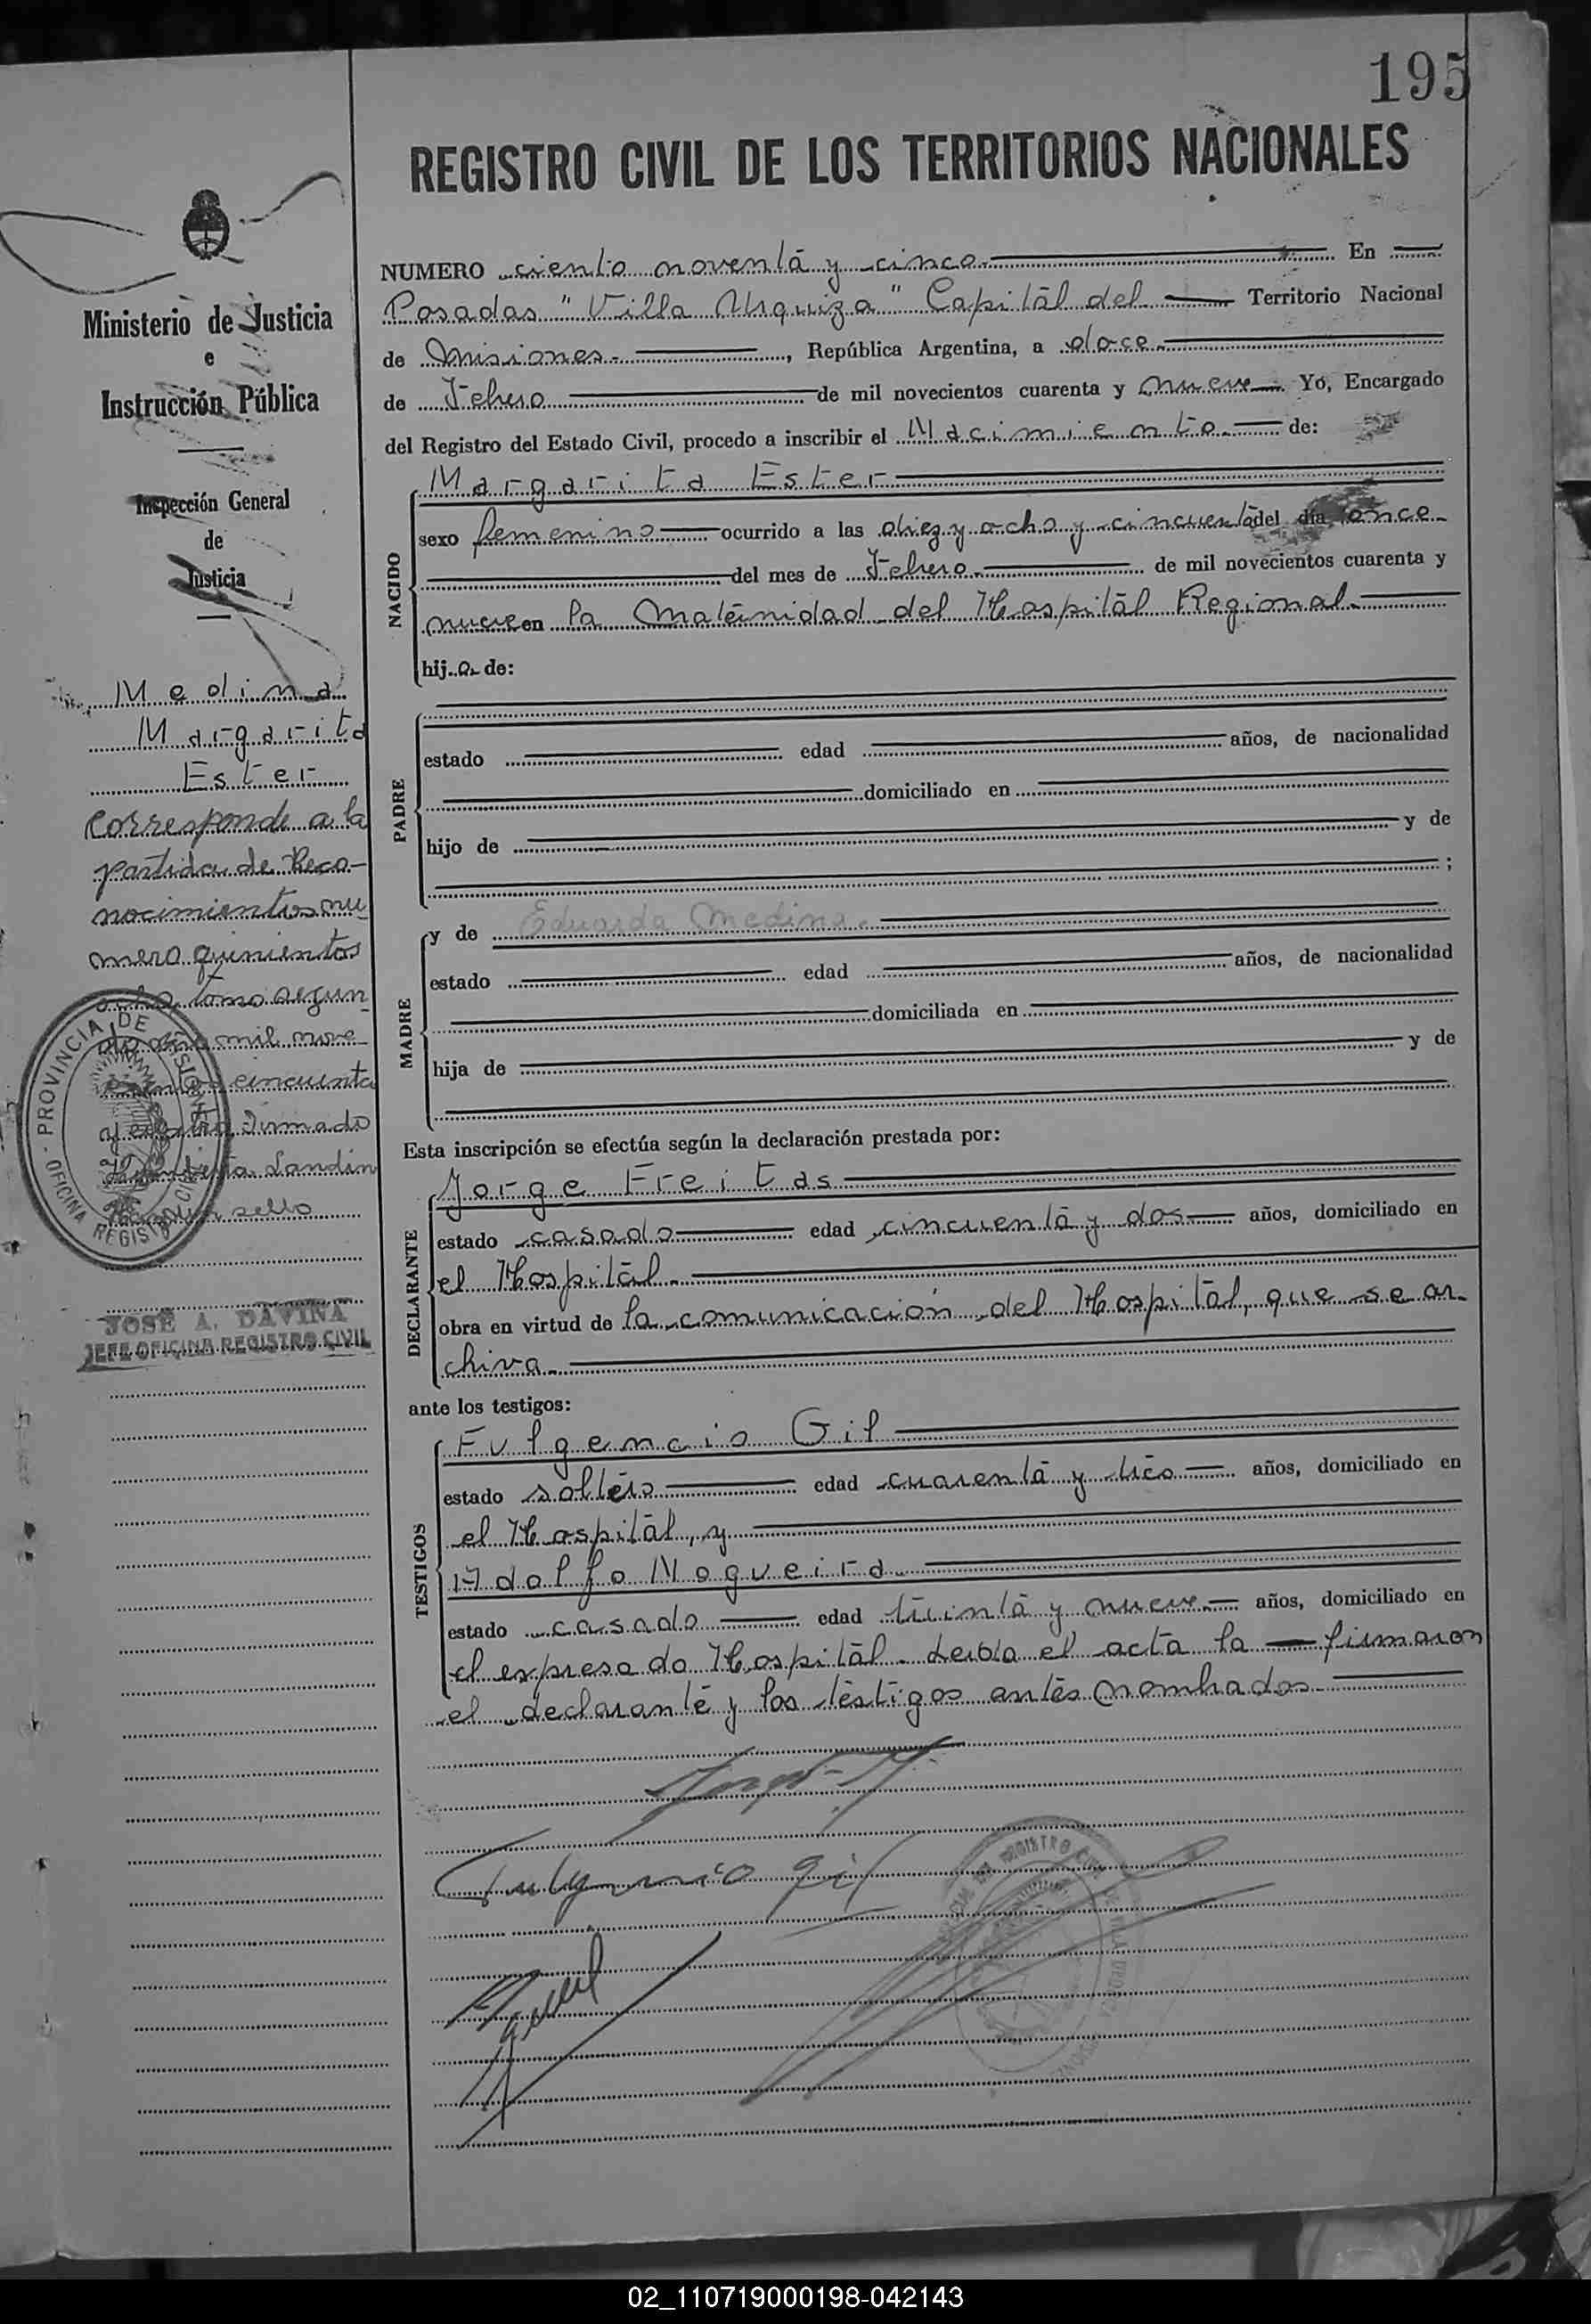 195
REGISTRO CIVIL DE LOS TERRITORIOS NACIONALES
Ministerio de Justicia
e
Instrucción Pública
Inspección General
de
Justicia
Medina
Margarita
Ester
Corresponde a la
partida de Reco-
nocimientos nu
mero quinientos
ocho, tomo segun-
do año mil nove
cientos cincuenta
y cuatro. Firmado
Landin
sello
PROVINCIA DE MISIONES
OFICINA REGISTRO CIVIL
JOSÉ A. DAVIÑA
JEFE OFICINA REGISTRO CIVIL
NUMERO ciento noventa y cinco En
Posadas "Villa Urquiza" Capital del Territorio Nacional
de Misiones , República Argentina, a doce
de Febrero de mil novecientos cuarenta y nueve Yo, Encargado
del Registro del Estado Civil, procedo a inscribir el Nacimiento de:
NACIDO
Margarita Ester
sexo femenino ocurrido a las diez y ocho y cincuenta del día once
del mes de Febrero de mil novecientos cuarenta y
nueve en la Maternidad del Hospital Regional
hija de:
PADRE
estado edad años, de nacionalidad
domiciliado en
hijo de y de
;
MADRE
y de Eduarda Medina
estado edad años, de nacionalidad
domiciliada en
hija de y de
Esta inscripción se efectúa según la declaración prestada por:
DECLARANTE
Jorge Freitas
estado casado edad cincuenta y dos años, domiciliado en
el Hospital
obra en virtud de la comunicación del Hospital, que se ar
chiva
ante los testigos:
TESTIGOS
Fulgencio Gil
estado soltero edad cuarenta y tres años, domiciliado en
el Hospital, y
Adolfo Nogueira
estado casado edad treinta y nueve años, domiciliado en
el expresado Hospital. Leida el acta la firmaron
el declarante y los testigos antes nombrados
Fulgencio Gil
02_110719000198-042143